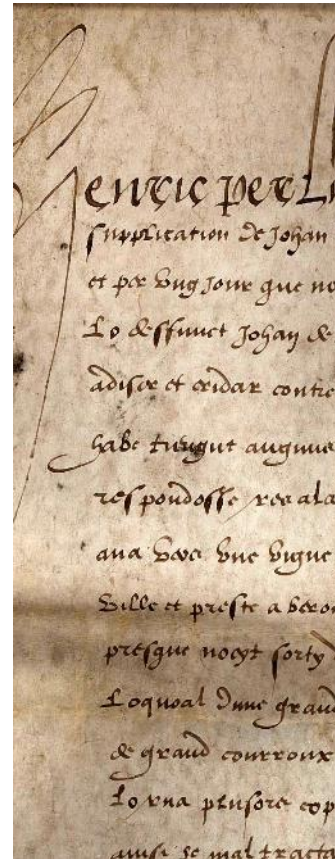 Henric per L
supplication de Johan
et per ung jour que no
Lo deffunct Johan de
et cridar contre
habe augune
respondosse res a la
ana une vigne
Ville et preste a
presque noeyt sorty
Loquoal dune grand
de grand courroux
Lo plusors cop
mal tracta